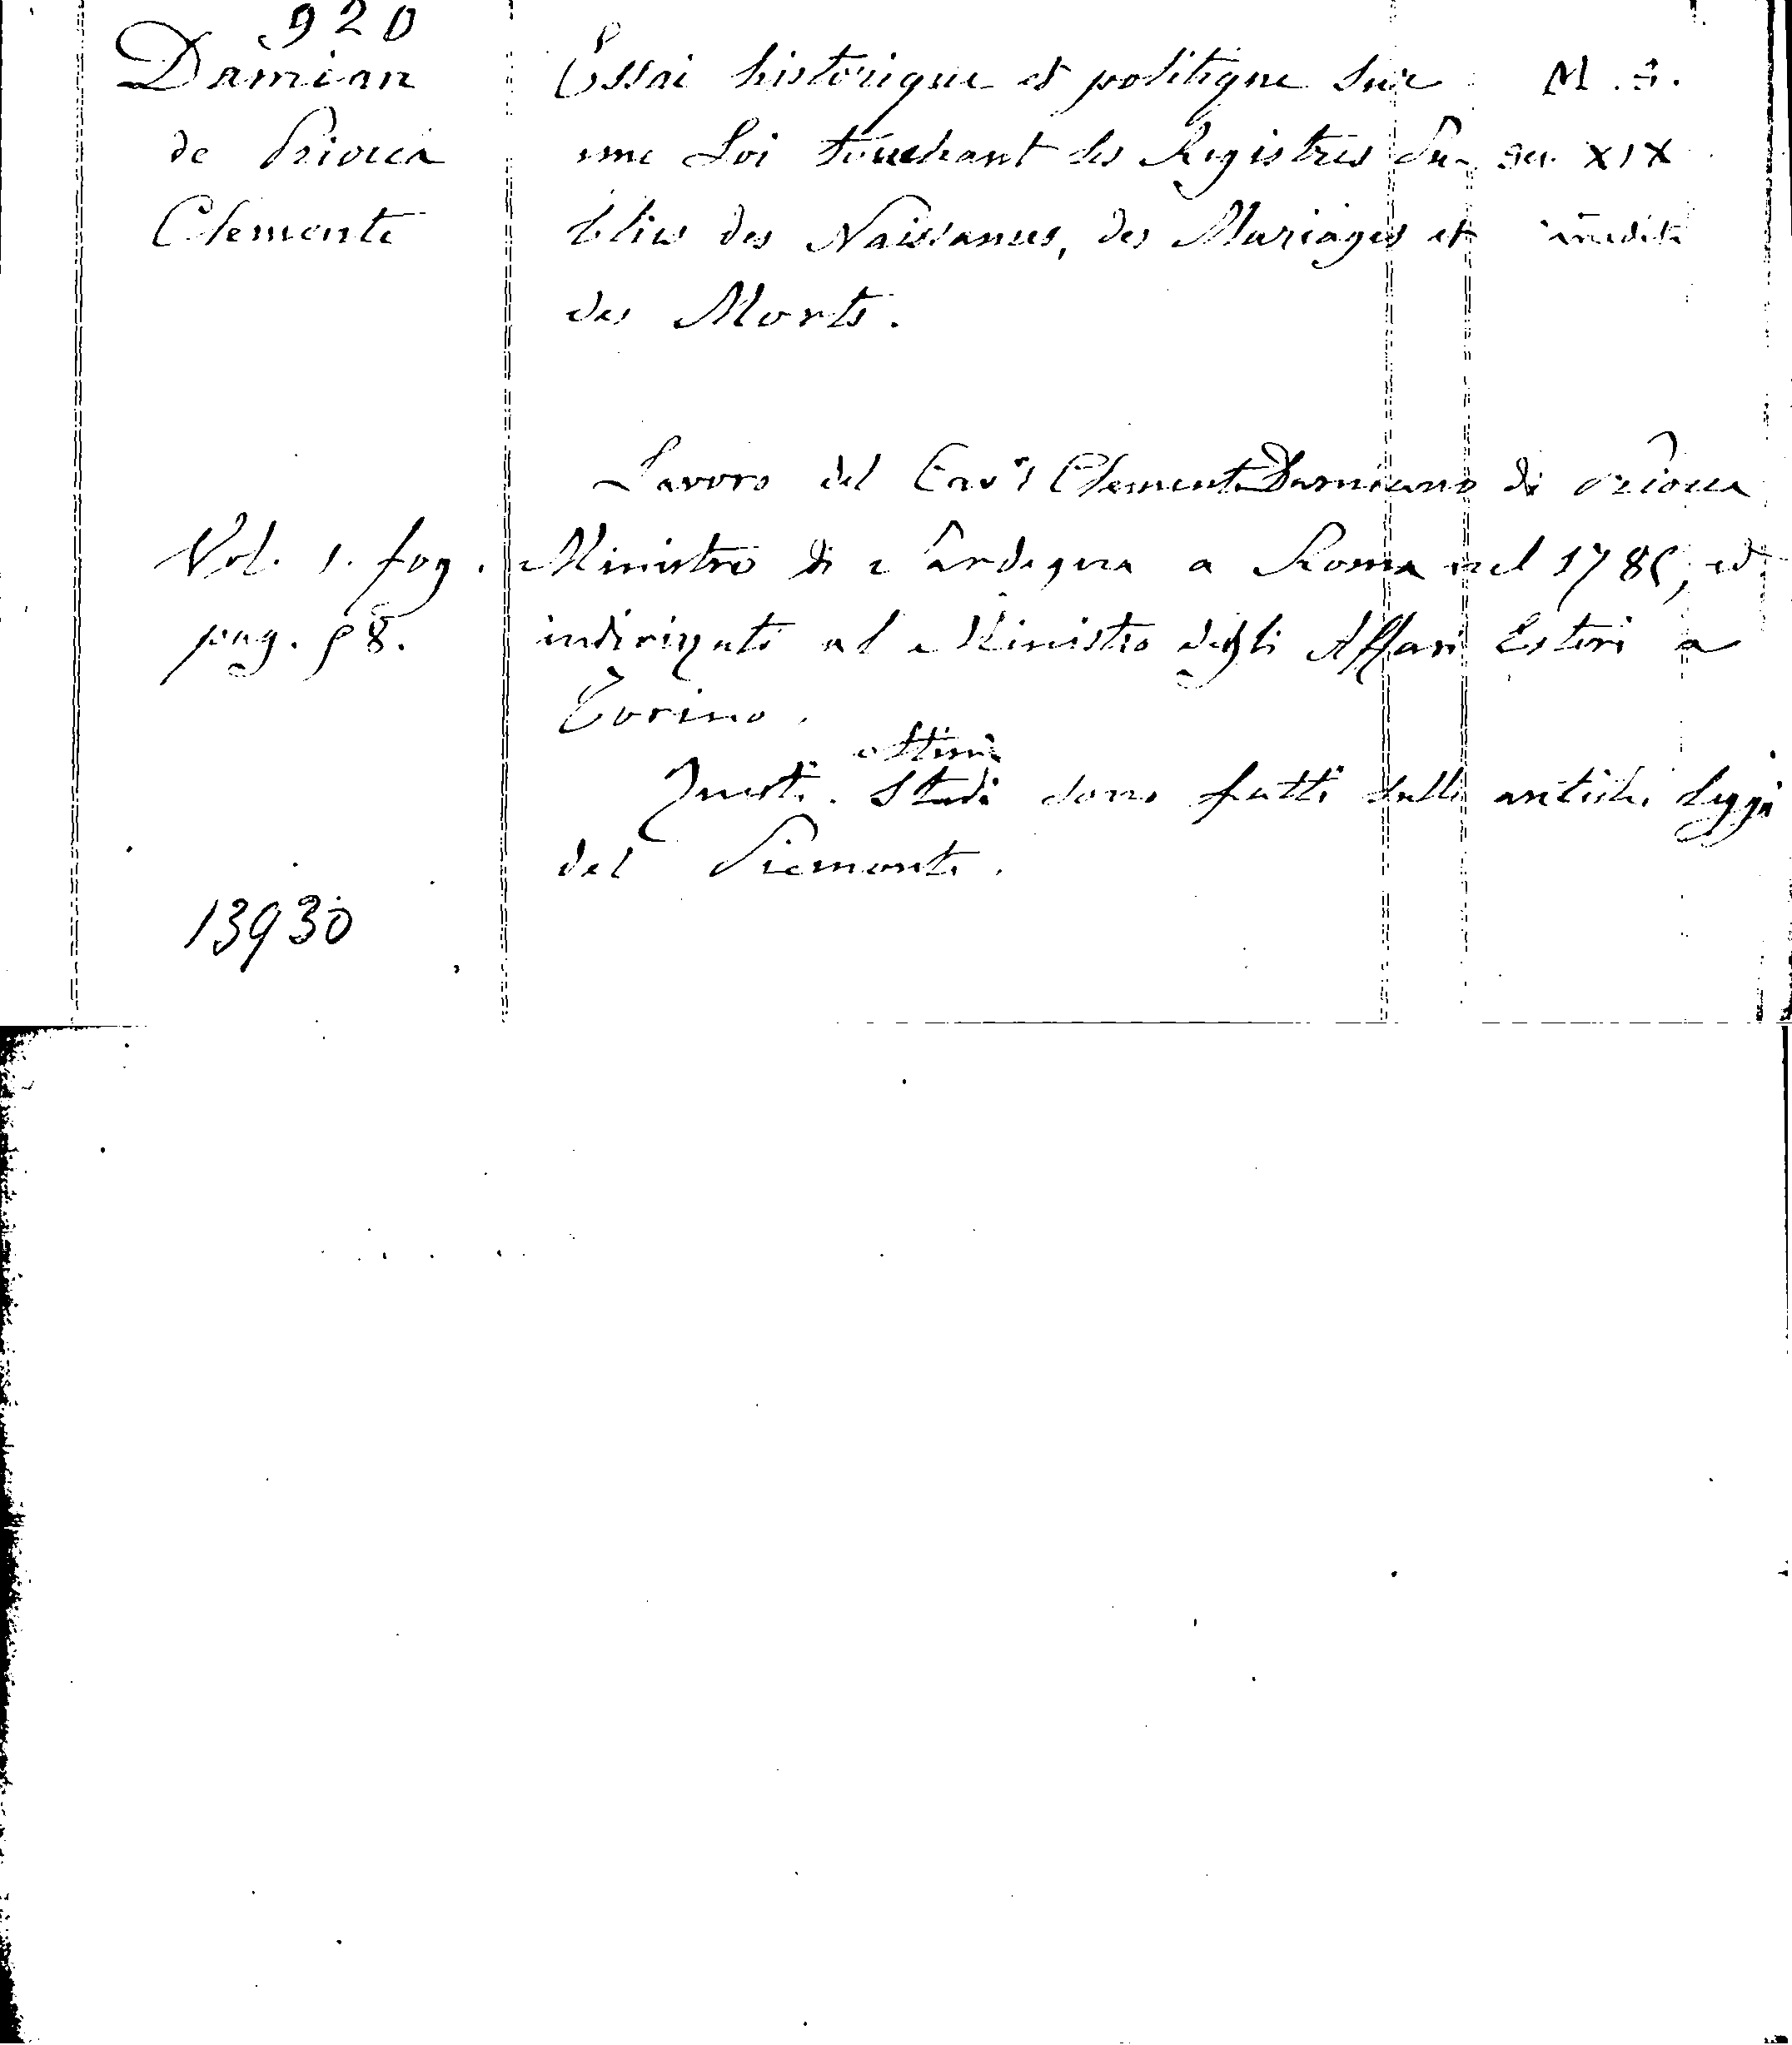 920
Damian
de Priocca
Clemente
Essai historique et politique sur
une Loi touchant les Registres Pu-
blics des Naissances, des Mariages et
des Morts.
M. S.
sec. XIX
inedito
Vol. 1. fog.
pag. 58.
Lavoro del Cav.r Clemente Damiano di Priocca
Ministro di Sardegna a Roma nel 1786, ed
indirizzato al Ministro degli Affari Esteri a
Torino.
Questi ottimi studi sono fatti sulle antiche leggi
del Piemonte.
13930